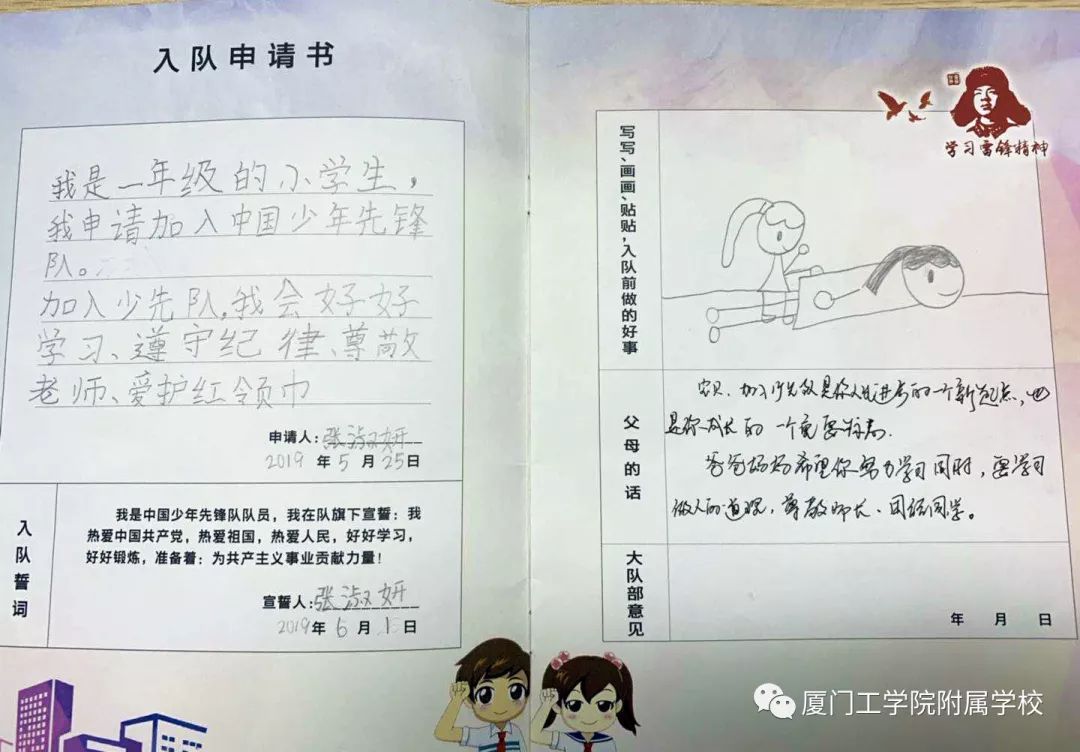 入队申请书
我是一年级的小学生，
我申请加入中国少年先锋
队。
加入少先队,我会好好
学习、遵守纪律、尊敬
老师、爱护红领巾
申请人:张淑妍
2019年5月25日
入队誓词
我是中国少年先锋队队员，我在队旗下宣誓：我
热爱中国共产党，热爱祖国，热爱人民，好好学习，
好好锻炼，准备着：为共产主义事业贡献力量！
宣誓人:张淑妍
2019年6月1日
学习雷锋精神
写写、画画、贴贴，入队前做的好事
父母的话
加入少先队是你人生进步的一个新起点，也
是你成长的一个重要标志.
爸爸妈妈希望你努力学习同时，要学习
做人的道理，尊敬师长、团结同学。
大队部意见
年 月 日
厦门工学院附属学校